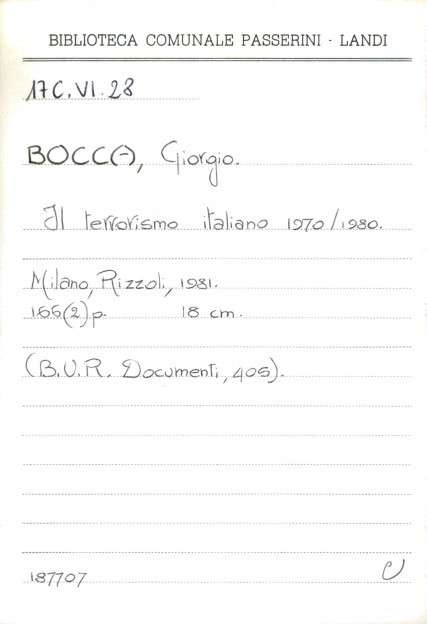 BIBLIOTECA COMUNALE PASSERINI - LANDI
17C.VI.28
BOCCA, Giorgio.
Il terrorismo italiano 1970/1980.
Milano, Rizzoli, 1981.
166(2)p. 18 cm.
(B.U.R. Documenti, 405).
187707